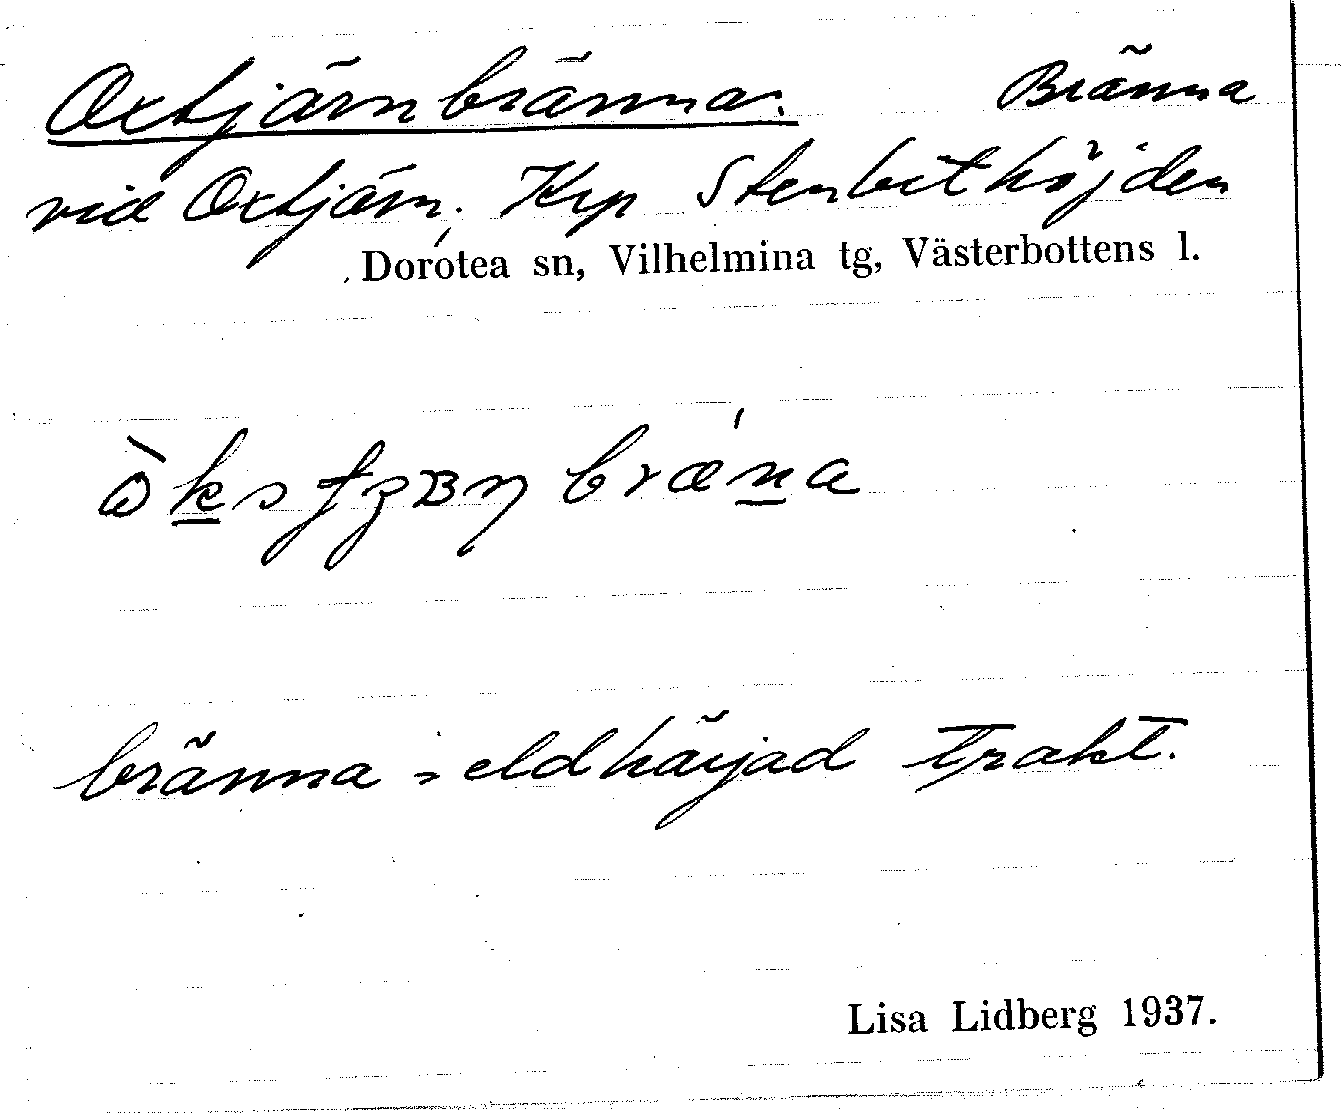 Oxtjärnbränna. Bränna
vid Oxtjärn. Krp Stenbithöjden
Dorótea sn, Vilhelmina tg, Västerbottens l.
bränna = eldhärjad trakt.
Lisa Lidberg 1937.